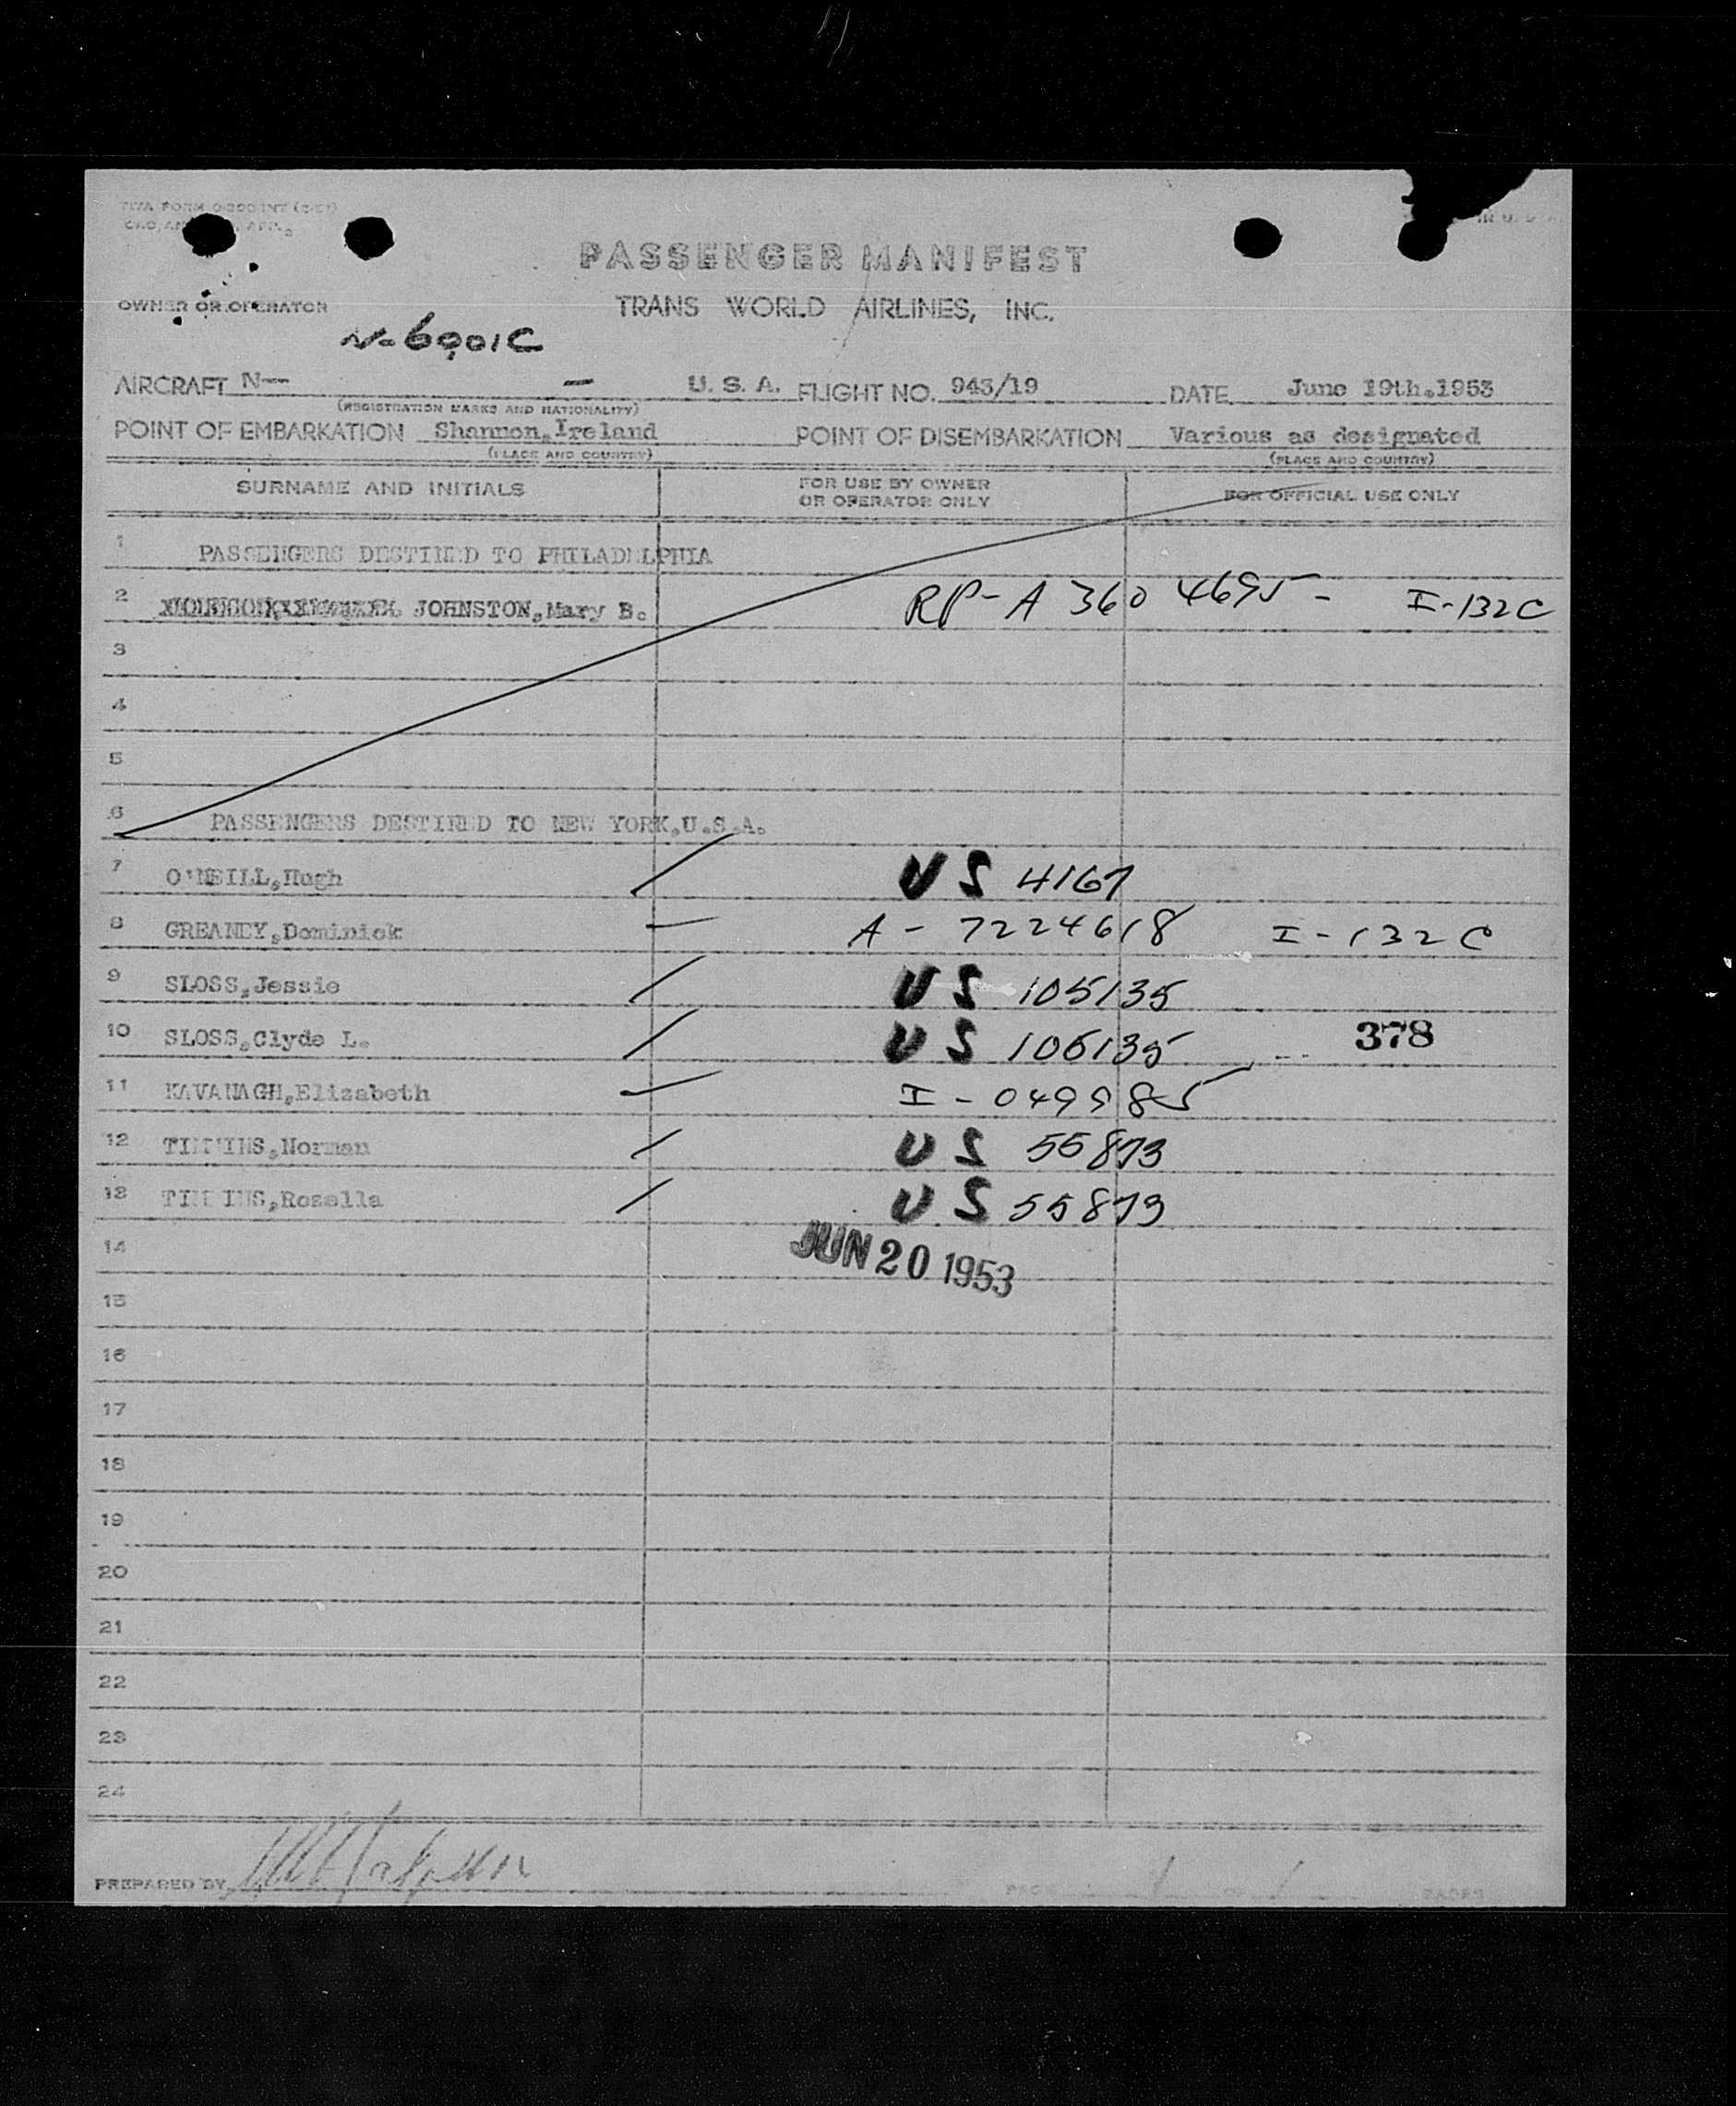 TWA FORM
PASSENGER MANIFEST
OWNER OR OPERATOR
TRANS WORLD AIRLINES, INC.
N-6901C
AIRCRAFT N-- - U. S. A. FLIGHT NO. 943/19 DATE June 19th.1953
(REGISTRATION MARKS AND NATIONALITY)
POINT OF EMBARKATION Shannon,Ireland POINT OF DISEMBARKATION Various as designated
(PLACE AND COUNTRY) (PLACE AND COUNTRY)
SURNAME AND INITIALS FOR USE BY OWNER OR OPERATOR ONLY FOR OFFICIAL USE ONLY
1 PASSENGERS DESTINED TO PHILADELPHIA
2 JOHNSTON,Mary B. RP-A 360 4695 - I-132C
3
4
5
6 PASSENGERS DESTINED TO NEW YORK,U.S.A.
7 O'NEILL,Hugh US 4167
8 GREANEY,Dominick A - 7224618 I-132C
9 SLOSS,Jessie US 105135
10 SLOSS,Clyde L. US 105135 378
11 KAVANAGH,Elizabeth I - 049985
12 TIMMINS,Norman US 55873
13 TIMMINS,Rosella US 55873
14 JUN 20 1953
15
16
17
18
19
20
21
22
23
24
PREPARED BY PAGE 1 OF 1 PAGES